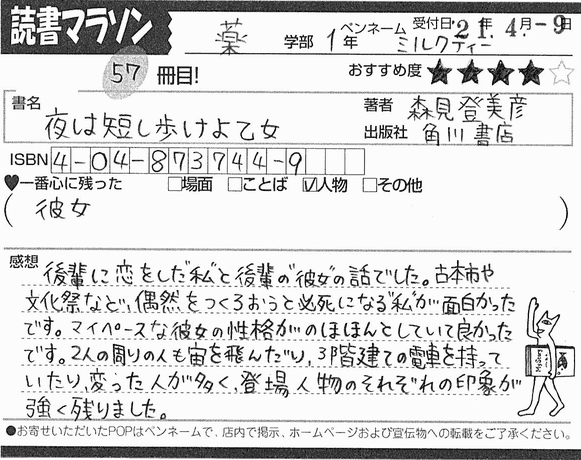 読書マラソン
薬 学部 1年 ペンネーム ミルクティー 受付日 '21年 4月-9日
57 冊目! おすすめ度 ★★★★☆
書名 夜は短し歩けよ乙女
著者 森見登美彦
出版社 角川書店
ISBN 4-04-873744-9
♥一番心に残った □場面 □ことば ☑人物 □その他
( 彼女 )
感想 後輩に恋をした"私"と後輩の"彼女"の話でした。古本市や
文化祭などで、偶然をつくろおうと必死になる"私"が面白かった
です。マイペースな彼女の性格がのほほんとしていて良かった
です。2人の周りの人も宙を飛んだり、3階建ての電車を持って
いたり、変った人が多く、登場人物のそれぞれの印象が
強く残りました。
●お寄せいただいたPOPはペンネームで、店内で掲示、ホームページおよび宣伝物への転載をご了承ください。